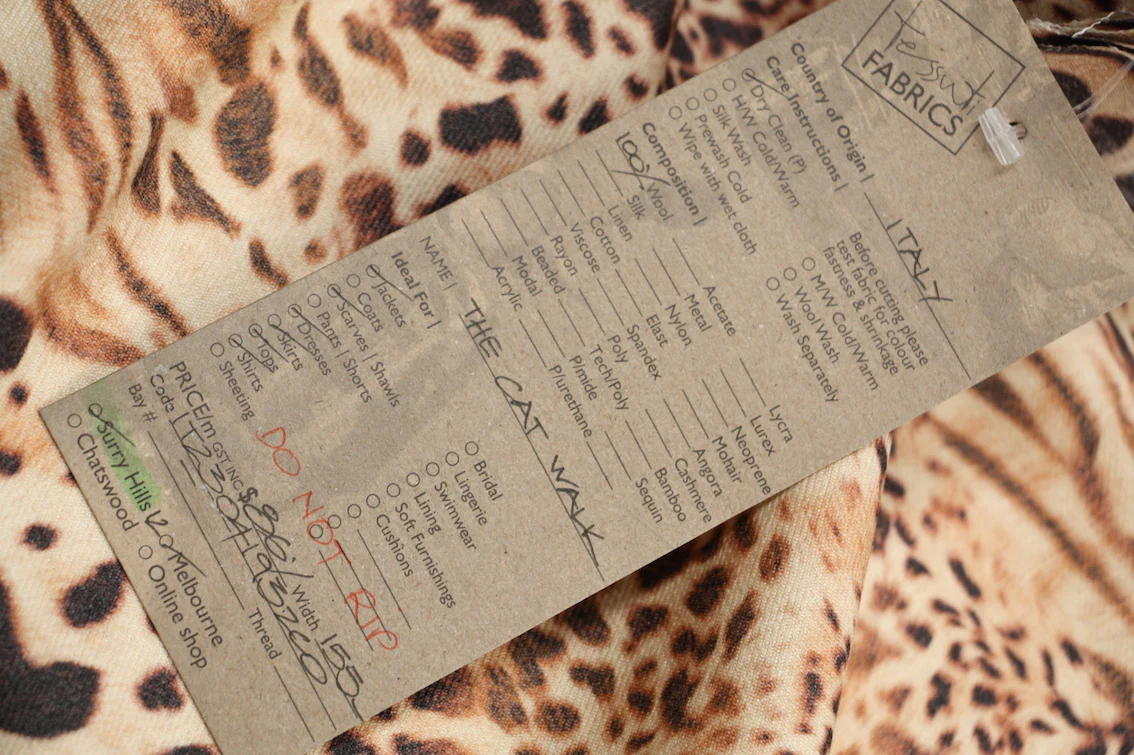 Tessuti
FABRICS
Country of Origin | ITALY
Care Instructions |
Dry Clean (P)
H/W Cold/Warm
Silk Wash
Prewash Cold
Wipe with wet cloth
Before cutting please
test fabric for colour
fastness & shrinkage
M/W Cold/Warm
Wool Wash
Wash Separately
Composition |
100% Wool
Silk
Linen
Cotton
Viscose
Rayon
Beaded
Modal
Acrylic
Acetate
Metal
Nylon
Elast
Spandex
Poly
Tech/Poly
P/mide
P/urethane
Lycra
Lurex
Neoprene
Mohair
Angora
Cashmere
Bamboo
Sequin
NAME | THE CAT WALK
Ideal For |
Jackets
Coats
Scarves | Shawls
Pants | Shorts
Dresses
Skirts
Tops
Shirts
Sheeting
Bridal
Lingerie
Swimwear
Lining
Soft Furnishings
Cushions
DO NOT RIP
PRICE/m GST INC Width 155
Code |
Bay # Thread
Surry Hills Melbourne
Chatswood Online shop